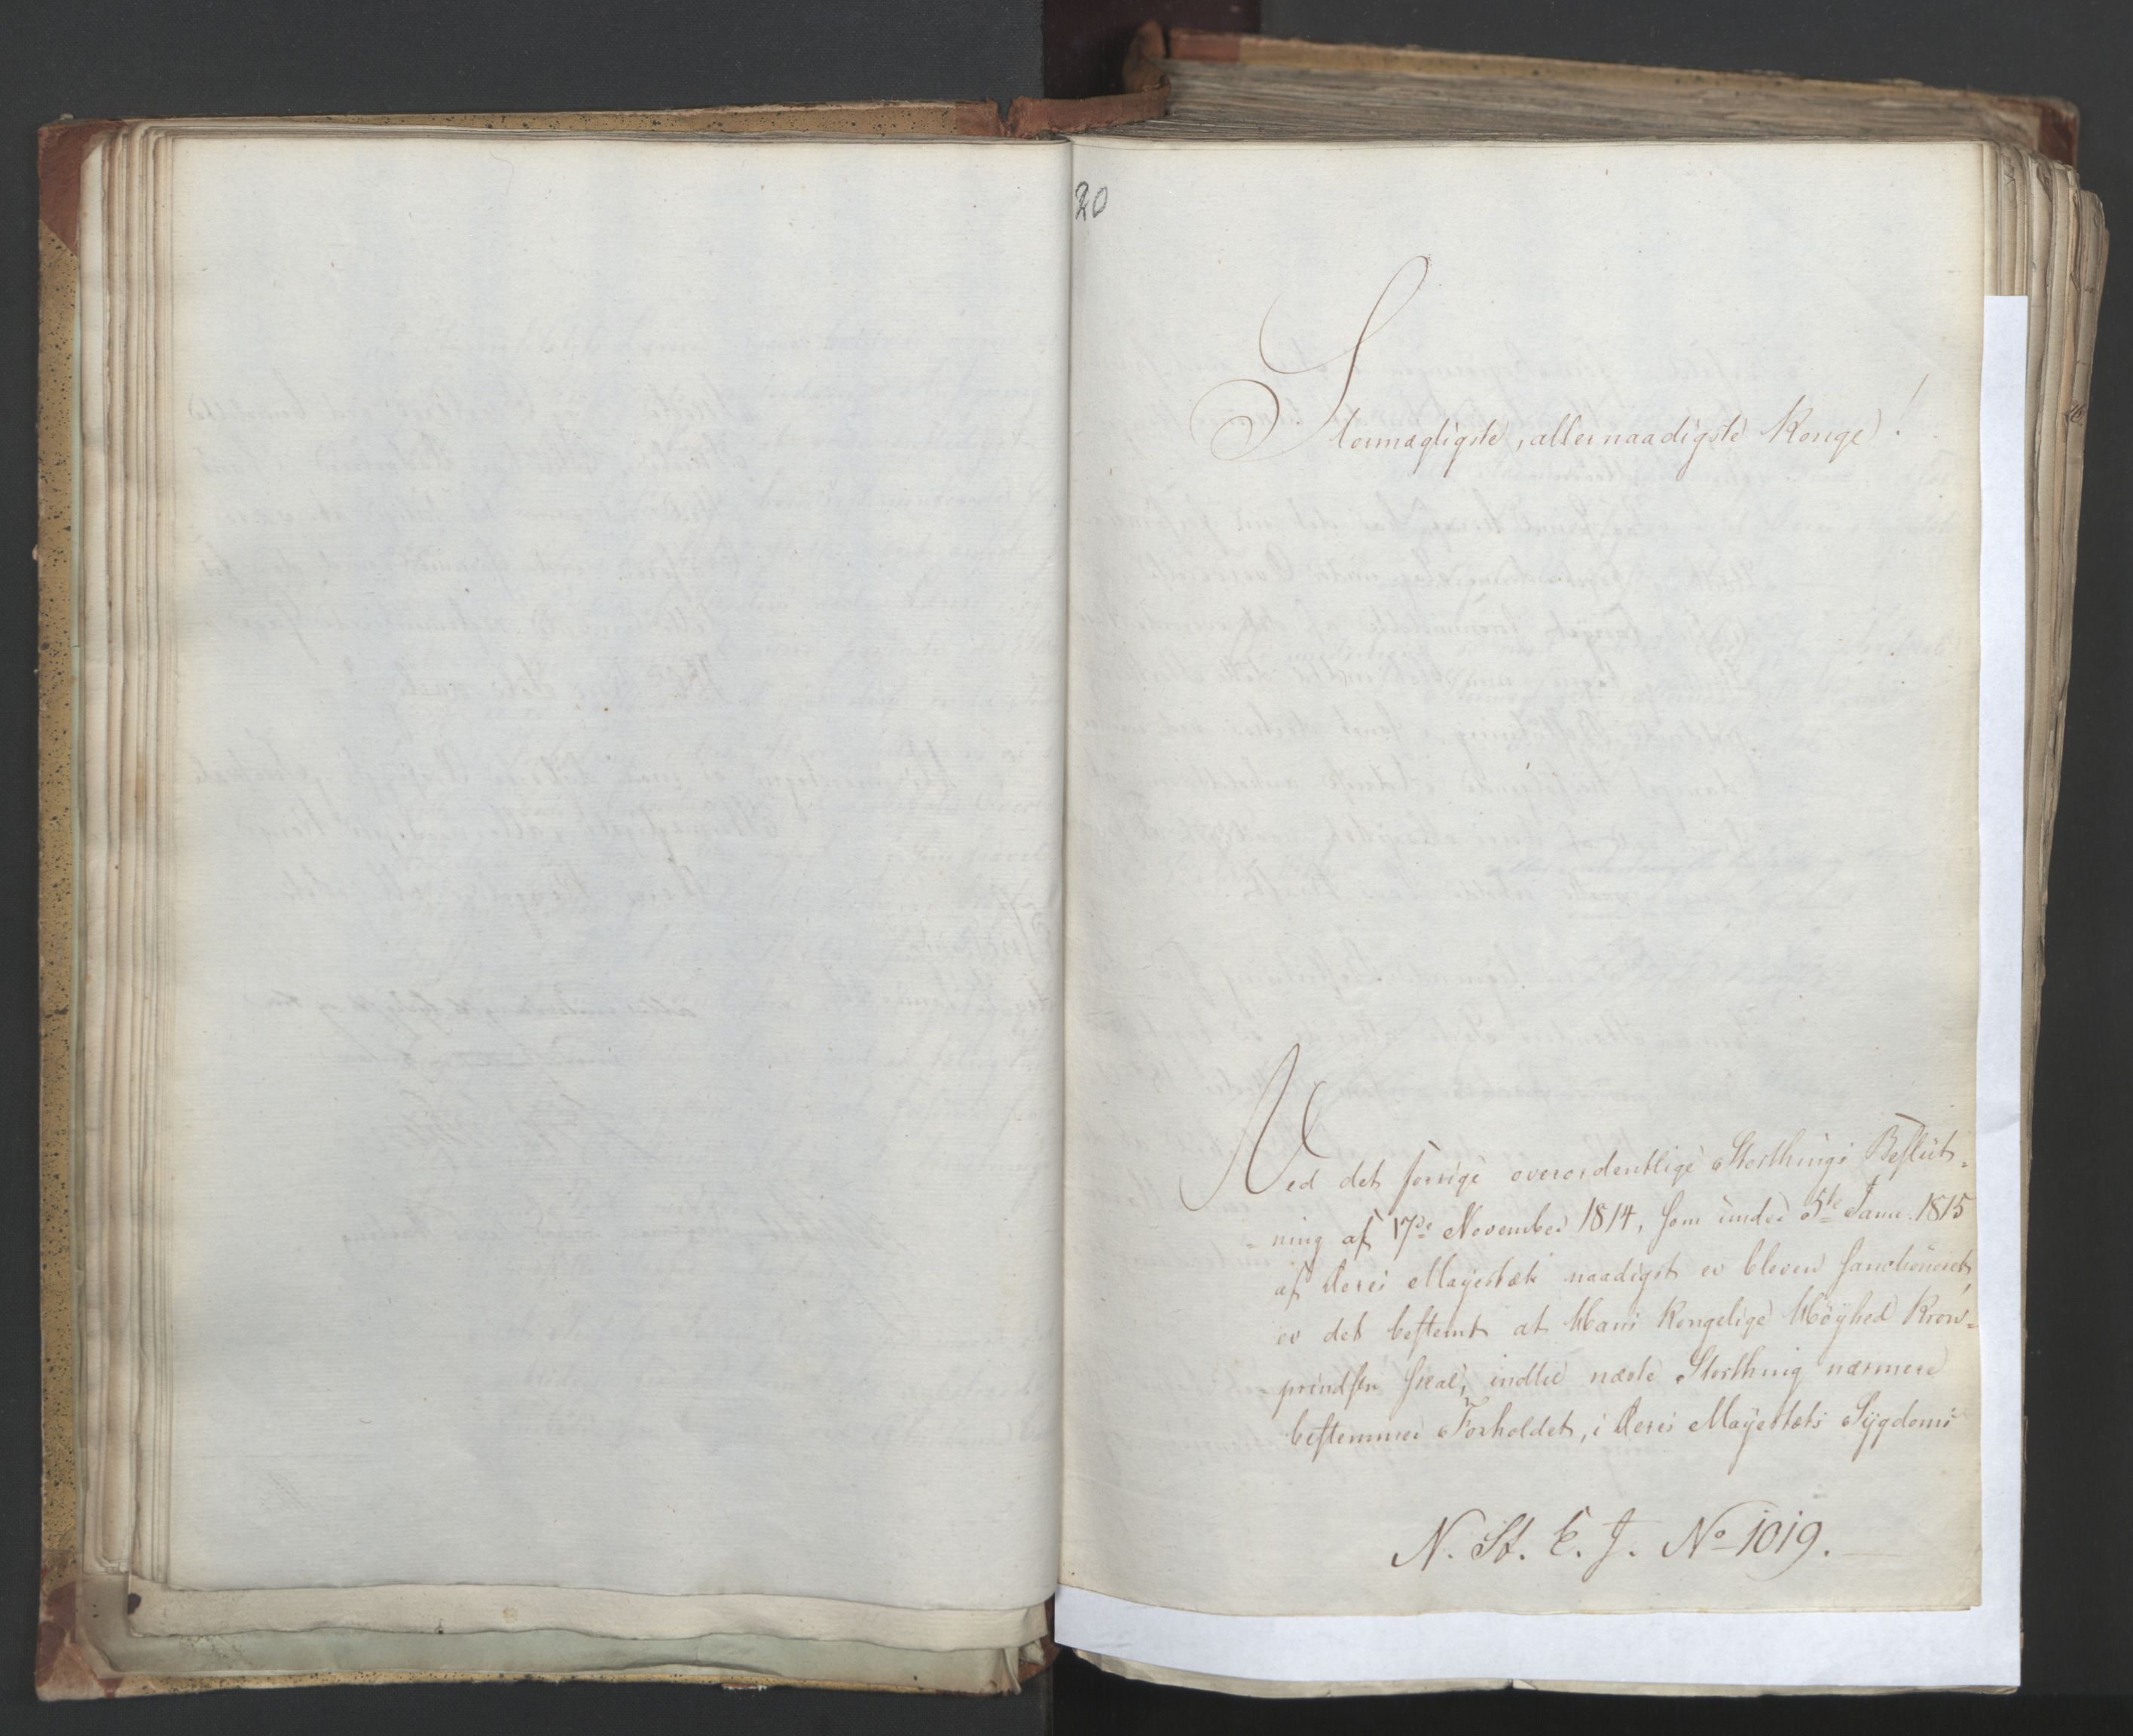 20
Stormægtigste, allernaadigste Konge!
Ved det forrige overordentlige Storthings Beslut-
-ning af 17de November 1814, som under 5te Janu. 1815
af Deres Mayestæt naadigst er bleven sanctioneret,
er det bestemt at Hans Kongelige Høyhed Kron-
prindsen skal, indtil næste Storthing nærmere
bestemmer Forholdet, i Deres Mayestæts Sygdoms
N. St. E. J. No 1019.